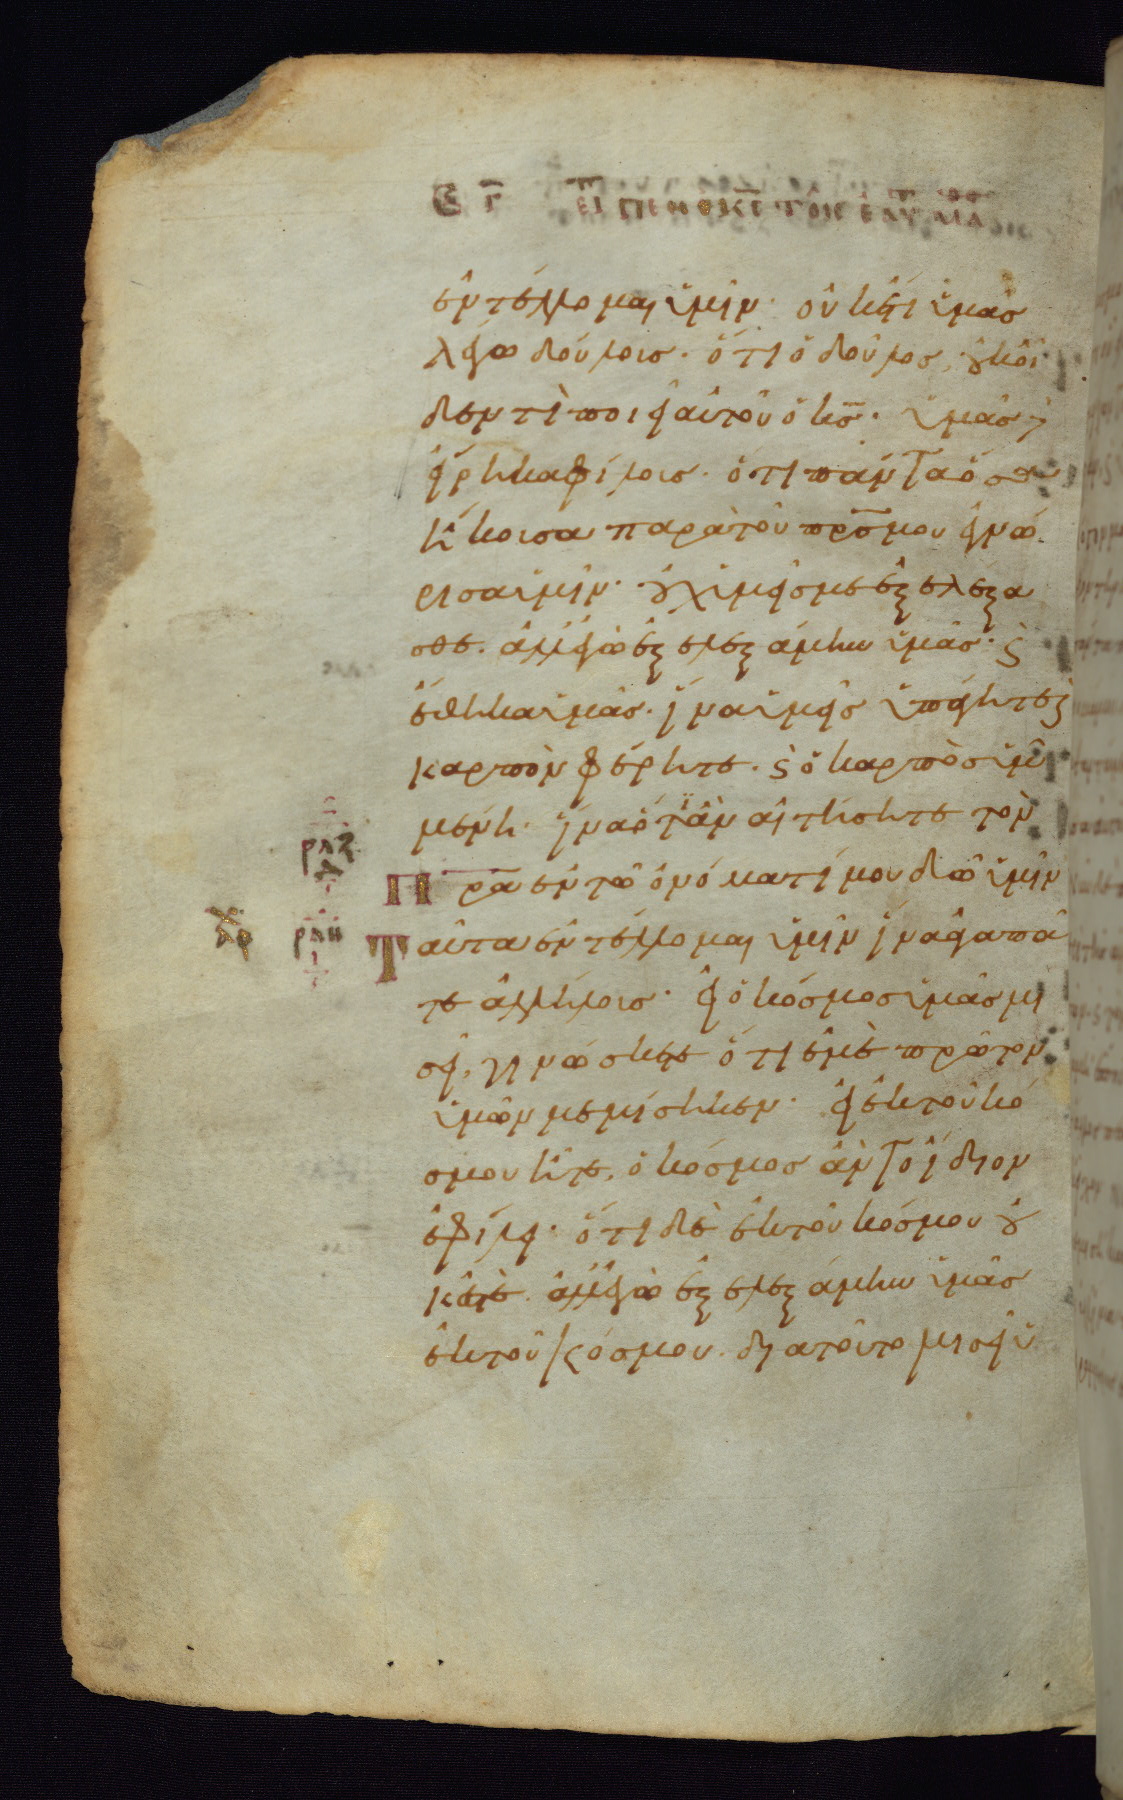 εἶπεν ὁ κ̅ς̅ τοῖς ἑαυ μαθ
ἐντέλλομαι ὑμῖν· οὐκέτι ὑμᾶσ
λέγω δούλους· ὅτι ὁ δοῦλοσ, οὐκ οἶ
δεν τί ποιεῖ αὐτοῦ ὁ κ̅ς̅· ὑμᾶσ δὲ
εἴρηκα φίλους· ὅτι πάντα ὅσα
ἤκουσα παρὰ τοῦ πρ̅σ̅ μου ἐγνώ
ρισα ὑμῖν· οὐχ ὑμεῖσ με ἐξελέξα
σθε. ἀλλ' ἐγὼ ἐξελεξάμην ὑμᾶσ· ϗ
ἔθηκα ὑμᾶσ· ἵνα ὑμεῖσ ὑπάγητε ϗ
καρπὸν φέρητε. ϗ ὁ καρπὸσ ὑμῶ
μένη· ἵνα ὅτι ἂν αἰτήσητε τὸν
ρλζ
Π̅ρ̅α̅ ἐν τῶ ὀνόματί μου δῶ ὑμῖν
ρλη Ταῦτα ἐντέλλομαι ὑμῖν ἵνα ἀγαπᾶ
τε ἀλλήλουσ· εἰ ὁ κόσμοσ ὑμᾶσ μι
σεῖ, γινώσκετε ὅτι ἐμὲ πρῶτον
ὑμῶν μεμίσηκεν· εἰ ἐκ τοῦ κό
σμου ἦτε, ὁ κόσμοσ ἂν τὸ ἴδιον
ἐφίλει· ὅτι δὲ ἐκ τοῦ κόσμου οὐ
κ ἐστὲ. ἀλλ' ἐγὼ ἐξελεξάμην ὑμᾶσ
ἐκ τοῦ κόσμου. διατοῦτο μισεῖ ὑ